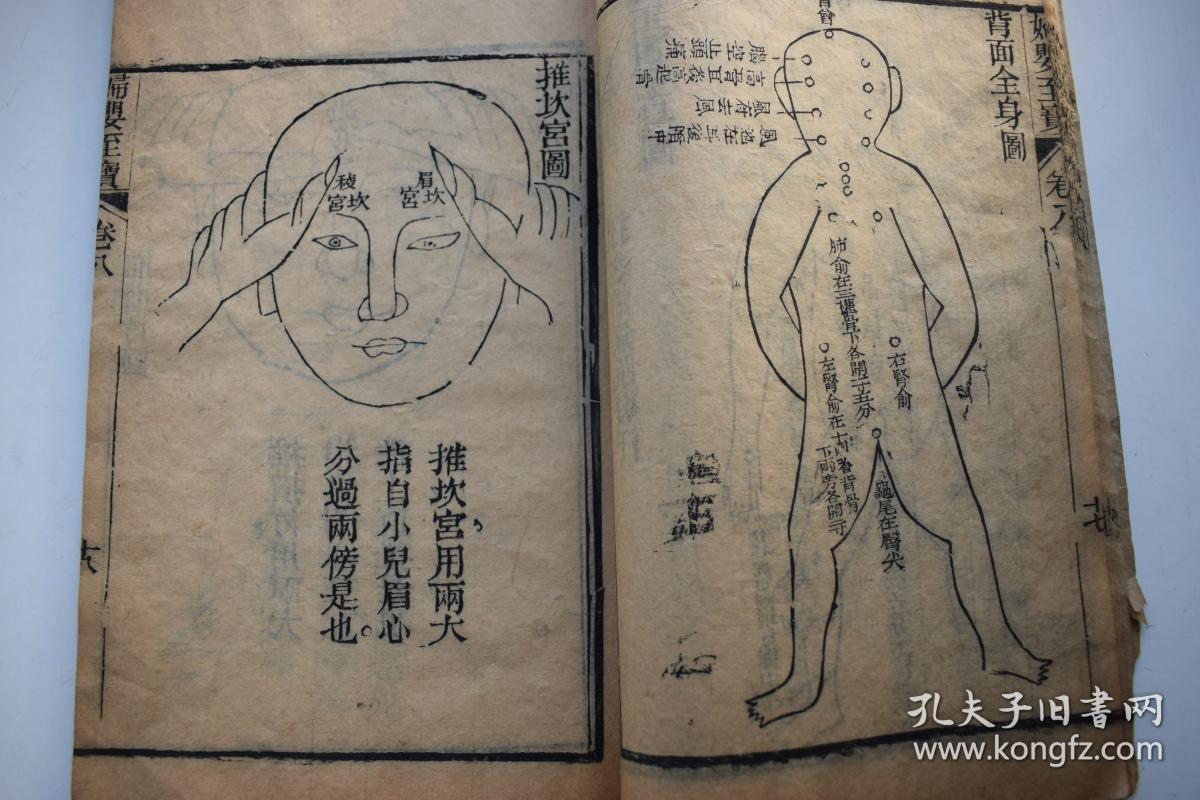 背面全身圖
腦空止頭痛
高骨耳後高起骨
風府去風
風池在耳後陷中
肺俞在三椎骨下各開一寸五分
右腎俞
左腎俞在十四
背骨
下兩旁各開一寸
龜尾在臀尖
推坎宮圖
眉坎宮
稜坎宮
推坎宮用兩大
指自小兒眉心
分過兩傍是也
婦嬰至寶
卷八
孔夫子旧书网
www.kongfz.com